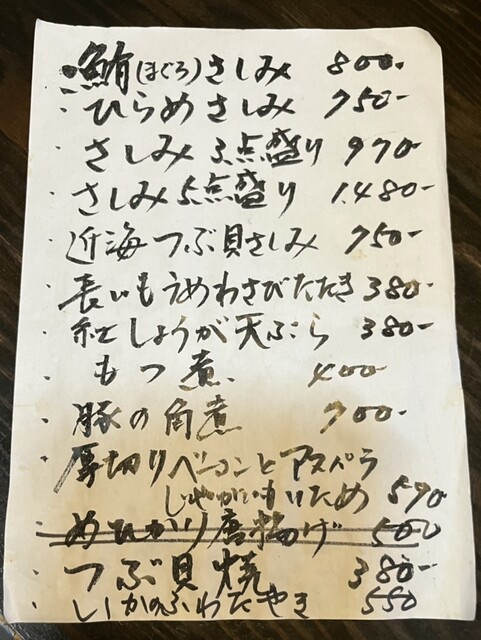 ・鮪(まぐろ)さしみ 800-
・ひらめさしみ 750-
・さしみ3点盛り 970-
・さしみ5点盛り 1.480-
・近海つぶ貝さしみ 750-
・長いもうめわさびたたき 380-
・紅しょうが天ぷら 380-
・もつ煮 400-
・豚の角煮 700-
・厚切りベーコンとアスパラ
じゃがいもいため 590
・めひかり唐揚げ 500
・つぶ貝焼 380-
・いかのふわたやき 550